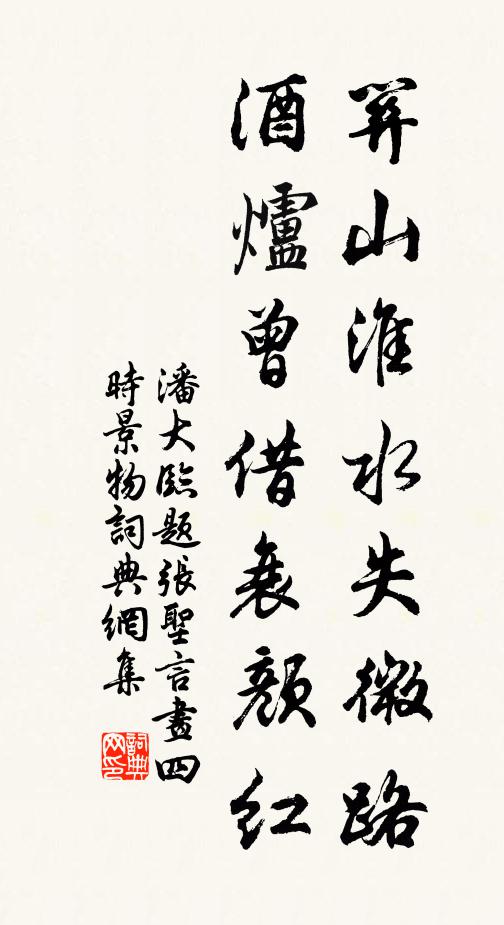 山淮水失微路
酒爐曾借衰顏紅
潘大臨題張聖言畫四
時景物詞典網集
詞典网印